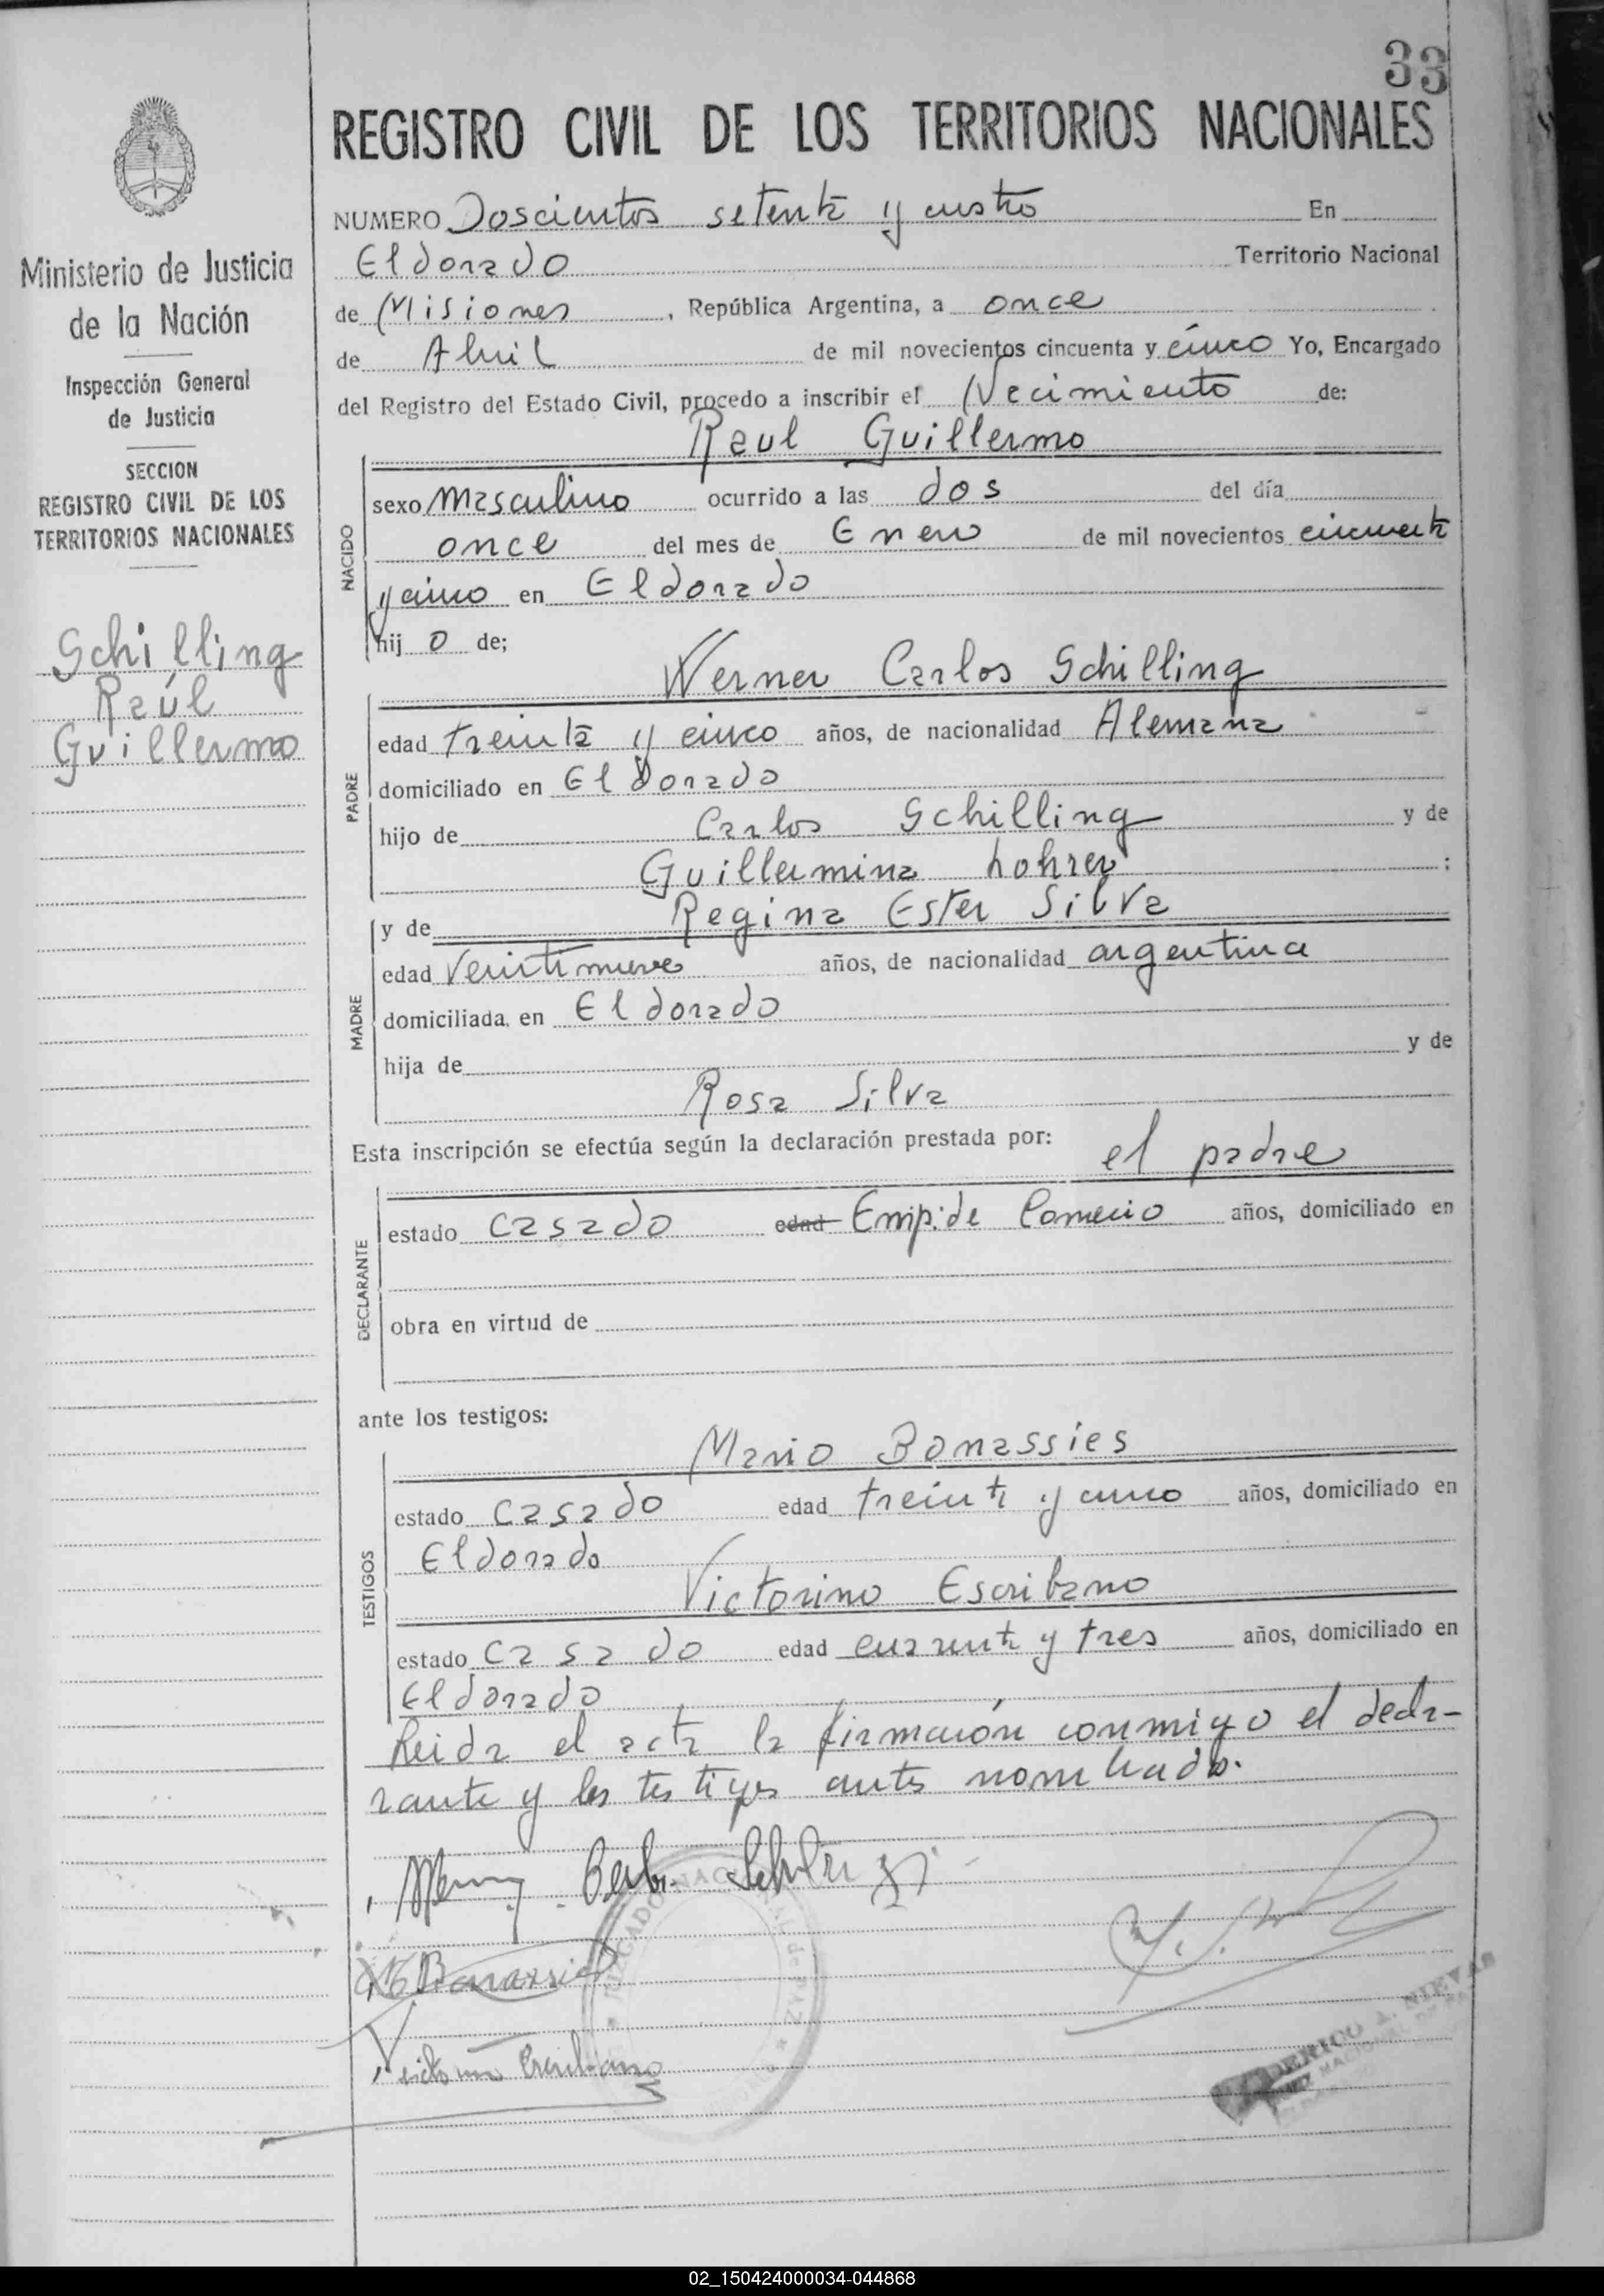 33
REGISTRO CIVIL DE LOS TERRITORIOS NACIONALES
Ministerio de Justicia
de la Nación
Inspección General
de Justicia
SECCION
REGISTRO CIVIL DE LOS
TERRITORIOS NACIONALES
Schilling
Raúl
Guillermo
NUMERO Doscientos setenta y cuatro En
Eldorado Territorio Nacional
de Misiones, República Argentina, a once
de Abril de mil novecientos cincuenta y cinco Yo, Encargado
del Registro del Estado Civil, procedo a inscribir el Nacimiento de:
Raul Guillermo
NACIDO
sexo masculino ocurrido a las dos del día
once del mes de Enero de mil novecientos cincuenta
y cinco en Eldorado
hij o de;
Werner Carlos Schilling
PADRE
edad treinta y cinco años, de nacionalidad Alemana
domiciliado en Eldorado
hijo de Carlos Schilling y de
Guillermina Lohrer ;
y de Regina Ester Silva
MADRE
edad Veintinueve años, de nacionalidad argentina
domiciliada en Eldorado
hija de y de
Rosa Silva
Esta inscripción se efectúa según la declaración prestada por: el padre
DECLARANTE
estado casado edad Emp. de Comercio años, domiciliado en
obra en virtud de
ante los testigos:
Mario Bonassies
TESTIGOS
estado casado edad treinta y cinco años, domiciliado en
Eldorado
Victorino Escribano
estado casado edad cuarenta y tres años, domiciliado en
Eldorado
Leida el acta la firmaron conmigo el decla-
rante y los testigos antes nombrados.
Bonassies
Victorino Escribano
JUZGADO NACIONAL DE PAZ
A. NIEVAS
02_150424000034-044868